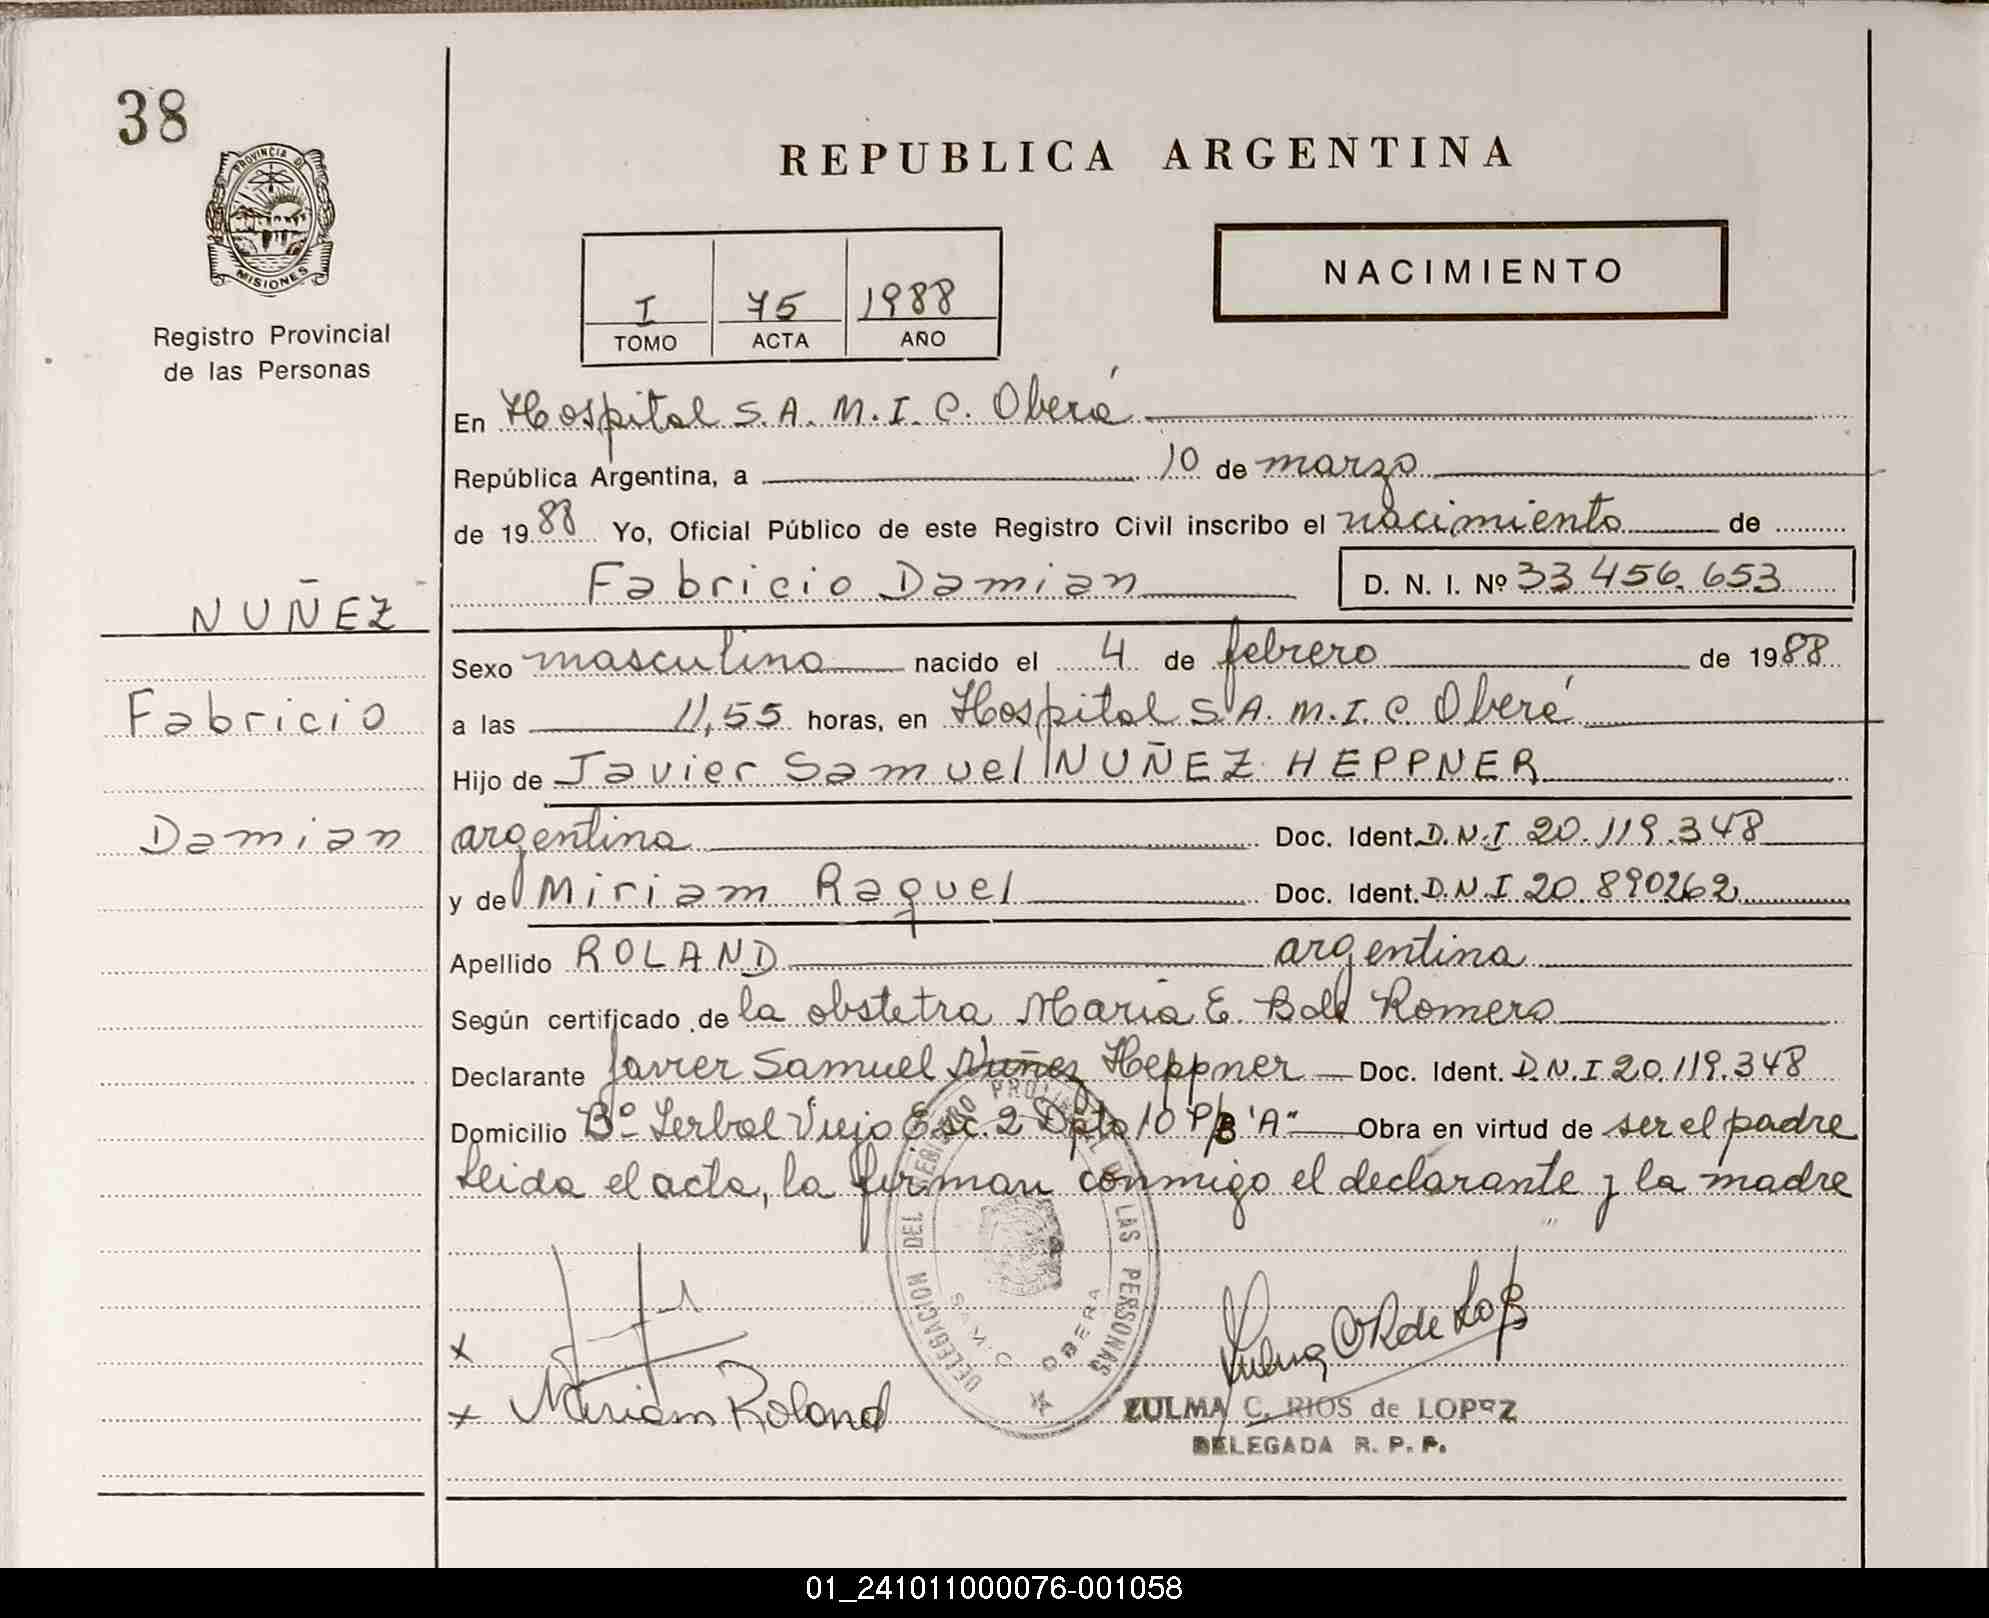 38
PROVINCIA DE
MISIONES
Registro Provincial
de las Personas
REPUBLICA ARGENTINA
I 75 1988
TOMO ACTA AÑO
NACIMIENTO
En Hospital S.A.M.I.C. Oberá
República Argentina, a 10 de marzo
de 1988 Yo, Oficial Público de este Registro Civil inscribo el nacimiento de
Fabricio Damian D. N. I. Nº 33.456.653
NUÑEZ
Fabricio
Damian
Sexo masculino nacido el 4 de febrero de 1988
a las 11,55 horas, en Hospital S.A.M.I.C. Oberá
Hijo de Javier Samuel NUÑEZ HEPPNER
argentina Doc. Ident. D.N.I 20.119.348
y de Miriam Raquel Doc. Ident. D.N.I 20.890262
Apellido ROLAND argentina
Según certificado de la obstetra Maria E. Romero
Declarante Javier Samuel Nuñez Heppner Doc. Ident. D.N.I 20.119.348
Domicilio Bº Yerbal Viejo Esc. 2 Dpto 10 P/B "A" Obra en virtud de ser el padre
Leida el acta, la firman conmigo el declarante y la madre
DELEGACION DEL REGISTRO PROVINCIAL DE LAS PERSONAS
S.A.M.I.C. OBERA
x
x Miriam Roland
Zulma C R de Lopez
ZULMA C. RIOS de LOPEZ
DELEGADA R. P. P.
01_241011000076-001058